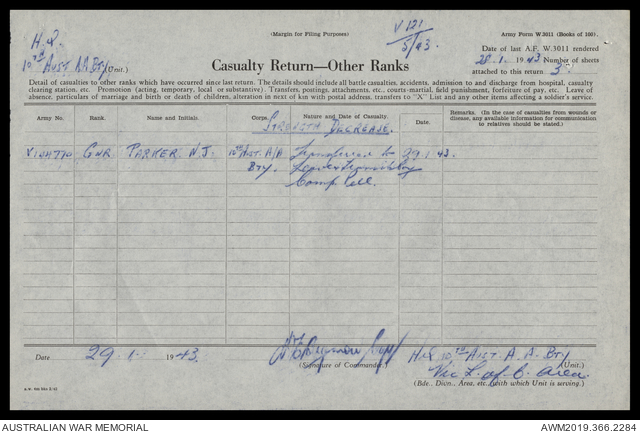 (Margin for Filing Purposes)
V 121
5/43
Army Form W.3011 (Books of 100).
H.Q.
10TH AUST A.A. BTY (Unit.)
Date of last A.F. W.3011 rendered
28.1. 1943 Number of sheets
attached to this return 3.
Casualty Return—Other Ranks
Detail of casualties to other ranks which have occurred since last return. The details should include all battle casualties, accidents, admission to and discharge from hospital, casualty
clearing station, etc. Promotion (acting, temporary, local or substantive). Transfers, postings, attachments, etc., courts-martial, field punishment, forfeiture of pay, etc. Leave of
absence, particulars of marriage and birth or death of children, alteration in next of kin with postal address, transfers to "X" List and any other items affecting a soldier's service.
Army No. Rank. Name and Initials. Corps. Nature and Date of Casualty. Date. Remarks. (In the case of casualties from wounds or
disease, any available information for communication
to relatives should be stated.)
STRENGTH DECREASE.
V144770 GNR. PARKER. N.J. 10TH AST. A/A Transferred to 29.1.43.
BTY.
Camp Pell.
Date 29.1. 1943.
Capt
(Signature of Commander.)
H.Q 10TH AIST. A. A. BTY (Unit.)
Vic L. of C. Area.
(Bde., Divn., Area, etc., with which Unit is serving.)
AUSTRALIAN WAR MEMORIAL
AWM2019.366.2284